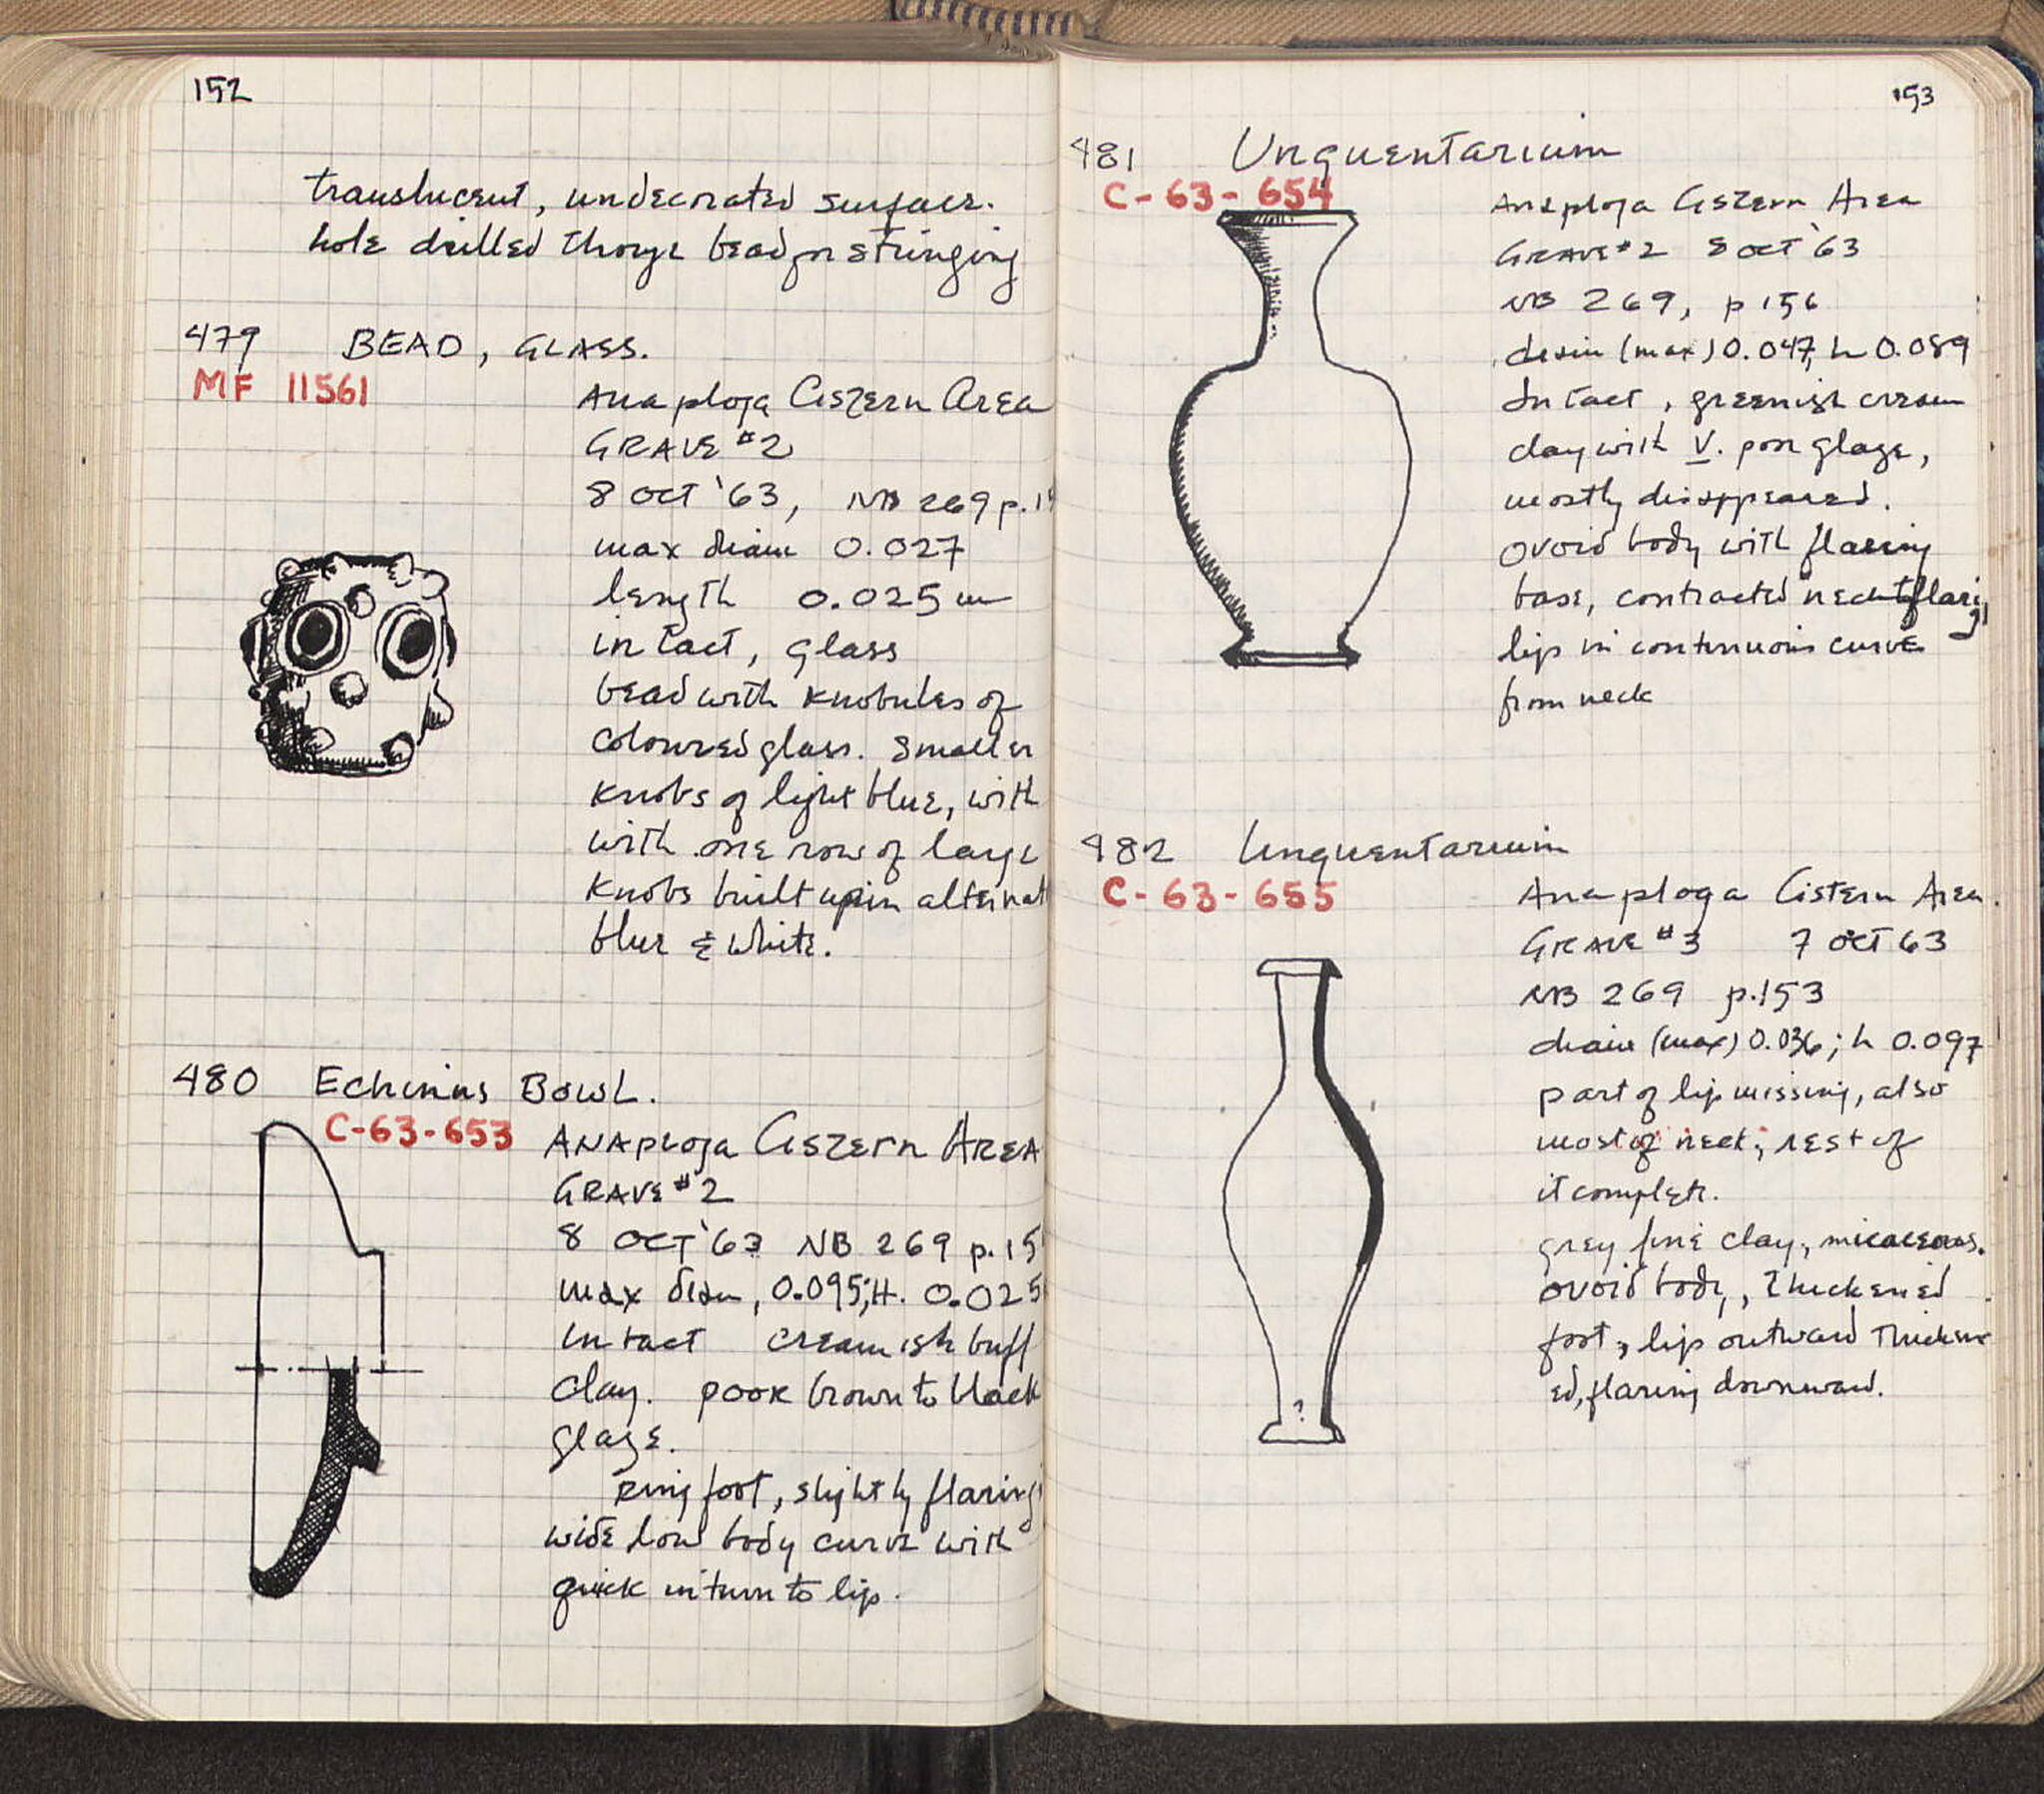 152
translucent, undecorated surface.
hole drilled through bead for stringing
479 BEAD, GLASS.
MF 11561
Anaploga Cistern Area
GRAVE #2
8 OCT '63, NB 269 p.
max diam 0.027
length 0.025 m
intact, glass
bead with knobules of
coloured glass. Smaller
knobs of light blue, with
with one row of large
knobs built up in alternat
blue & white.
480 Echinus Bowl.
C-63-653
ANAPloga Cistern AREA
GRAVE #2
8 OCT '63 NB 269 p. 15
max diam, 0.095; H. 0.025
Intact creamish buff
clay. poor brown to black
glaze.
Ring foot, slightly flaring
wide low body curve with
quick inturn to lip.
153
481 Unguentarium
C-63-654
Anaploga Cistern Area
GRAVE #2 8 OCT '63
NB 269, p 156
diam (max) 0.047, h 0.089
Intact, greenish cream
clay with V. poor glaze,
mostly disappeared.
ovoid body with flaring
base, contracted neck + flaring
lip in continuous curve
from neck
482 Unguentarium
C-63-655
Anaploga Cistern Area.
GRAVE #3 7 OCT 63
NB 269 p.153
diam (max) 0.036; h 0.097
part of lip missing, also
most of neck; rest of
it complete.
grey fine clay, micaceous.
ovoid body, thickened
foot, lip outward thicken
ed, flaring downward.
?